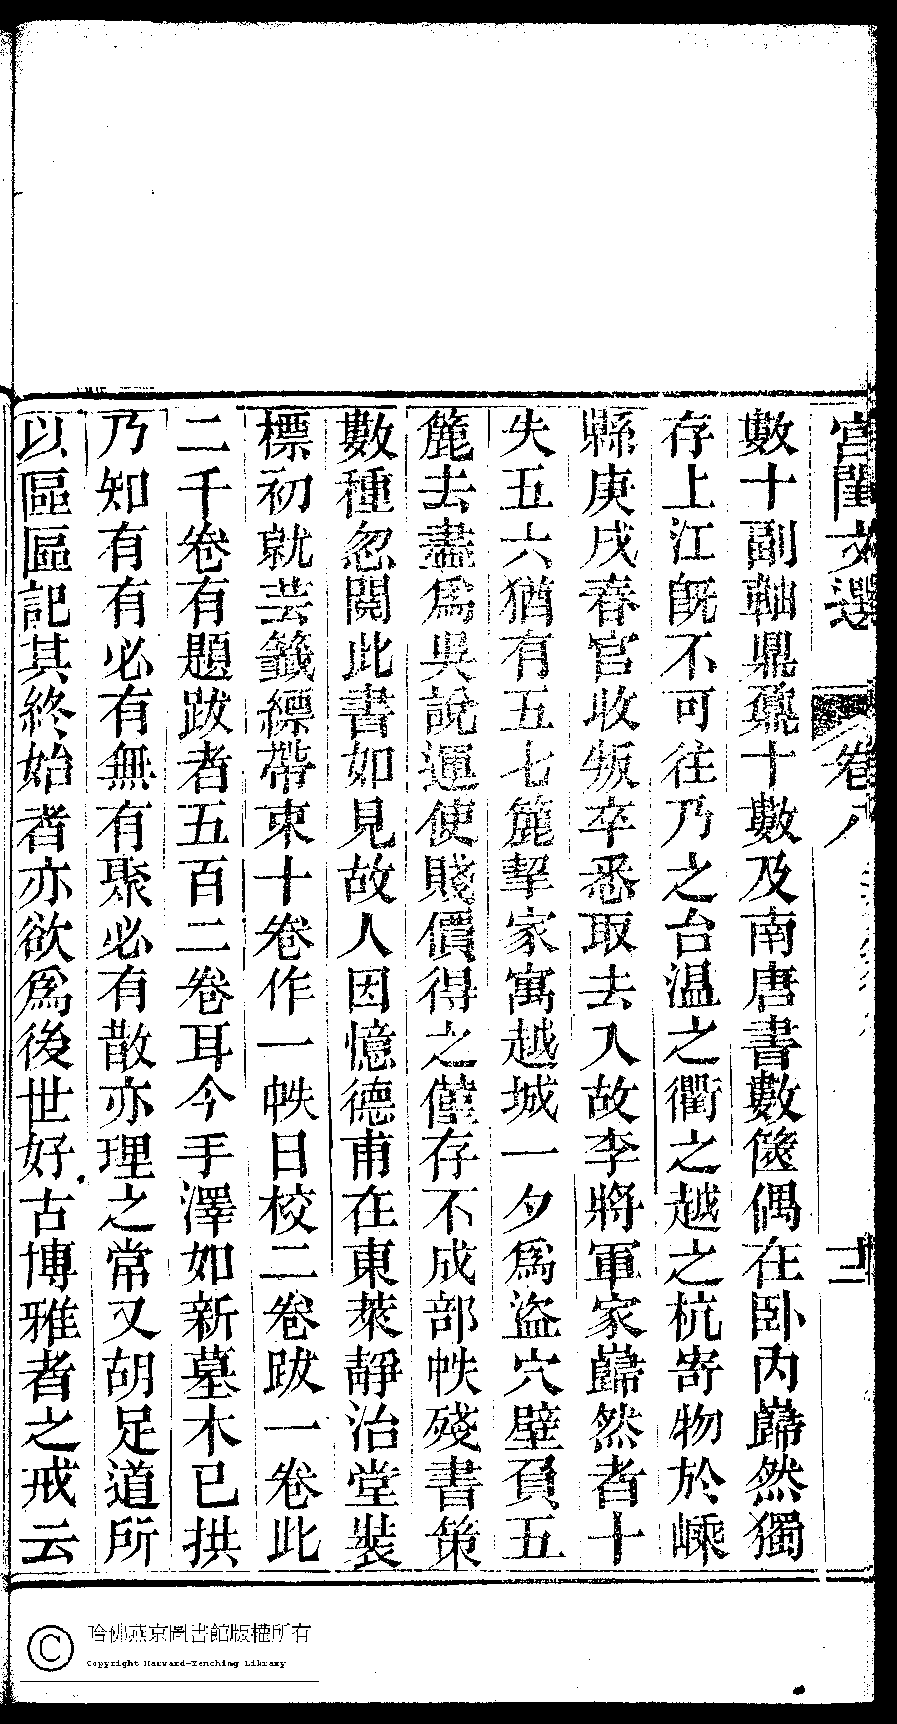 宮閨文選
卷八
十二
數十副軸鼎鼐十數及南唐書數篋偶在卧內巋然獨
存上江既不可往乃之台温之衢之越之杭寄物於嵊
縣庚戌春官收叛卒悉取去入故李將軍家巋然者十
失五六猶有五七簏挈家寓越城一夕爲盜穴壁負五
簏去盡爲吳說運使賤價得之僅存不成部帙殘書策
數種忽閱此書如見故人因憶德甫在東萊靜治堂裝
標初就芸籖縹帶束十卷作一帙日校二卷跋一卷此
二千卷有題跋者五百二卷耳今手澤如新墓木已拱
乃知有有必有無有聚必有散亦理之常又胡足道所
以區區記其終始者亦欲爲後世好古博雅者之戒云
哈佛燕京圖書館版權所有
Copyright Harvard-Yenching Library